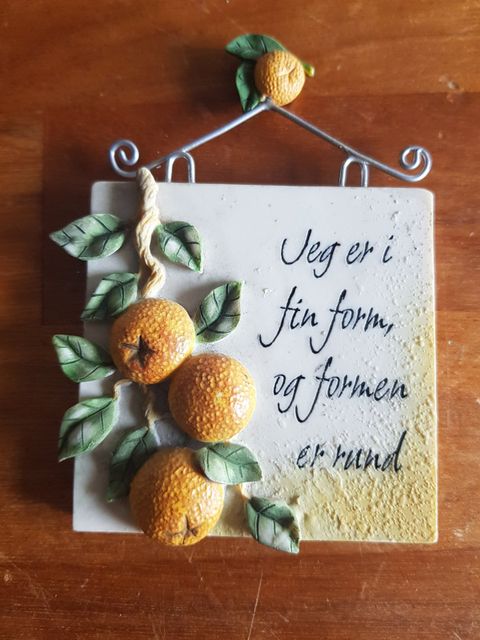 Jeg er i
fin form,
og formen
er rund